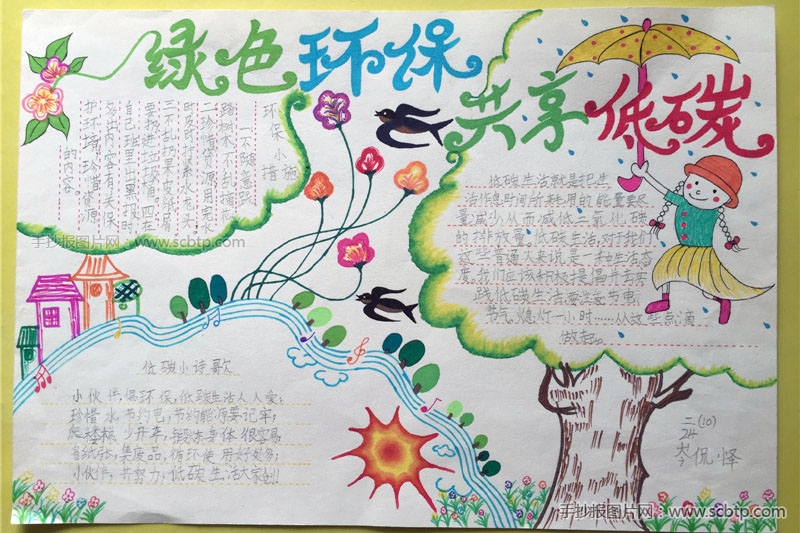 绿色环保
共享低碳
环保小措施
一不随意践
踏树木不乱摘花
二珍惜资源用完水
时及时拧紧水龙头
三不乱扔果皮纸屑
要扔进垃圾桶四在
自己班里出黑板报时
多出内容有关保
护环境，珍惜资源
的内容。
手抄报图片网：www.scbtp.com
低碳生活就是把生
活作息时间所耗用的能量要尽
量减少，从而减低二氧化碳
的排放量。低碳生活，对于我们
这些普通人来说是一种生活态
度，我们应该积极提倡并去实
践低碳生活，要注意节电、
节气，熄灯一小时……从这些点滴
做起。
低碳小诗歌
小伙伴，保环保，低碳生活人人爱；
珍惜水，节约电，节约能源要记牢；
爬楼梯，少开车，锻炼身体很容易；
省纸张，集废品，循环使用好处多；
小伙伴，共努力，低碳生活大家创！
二(10)
24
侃怿
手抄报图片网：www.scbtp.com